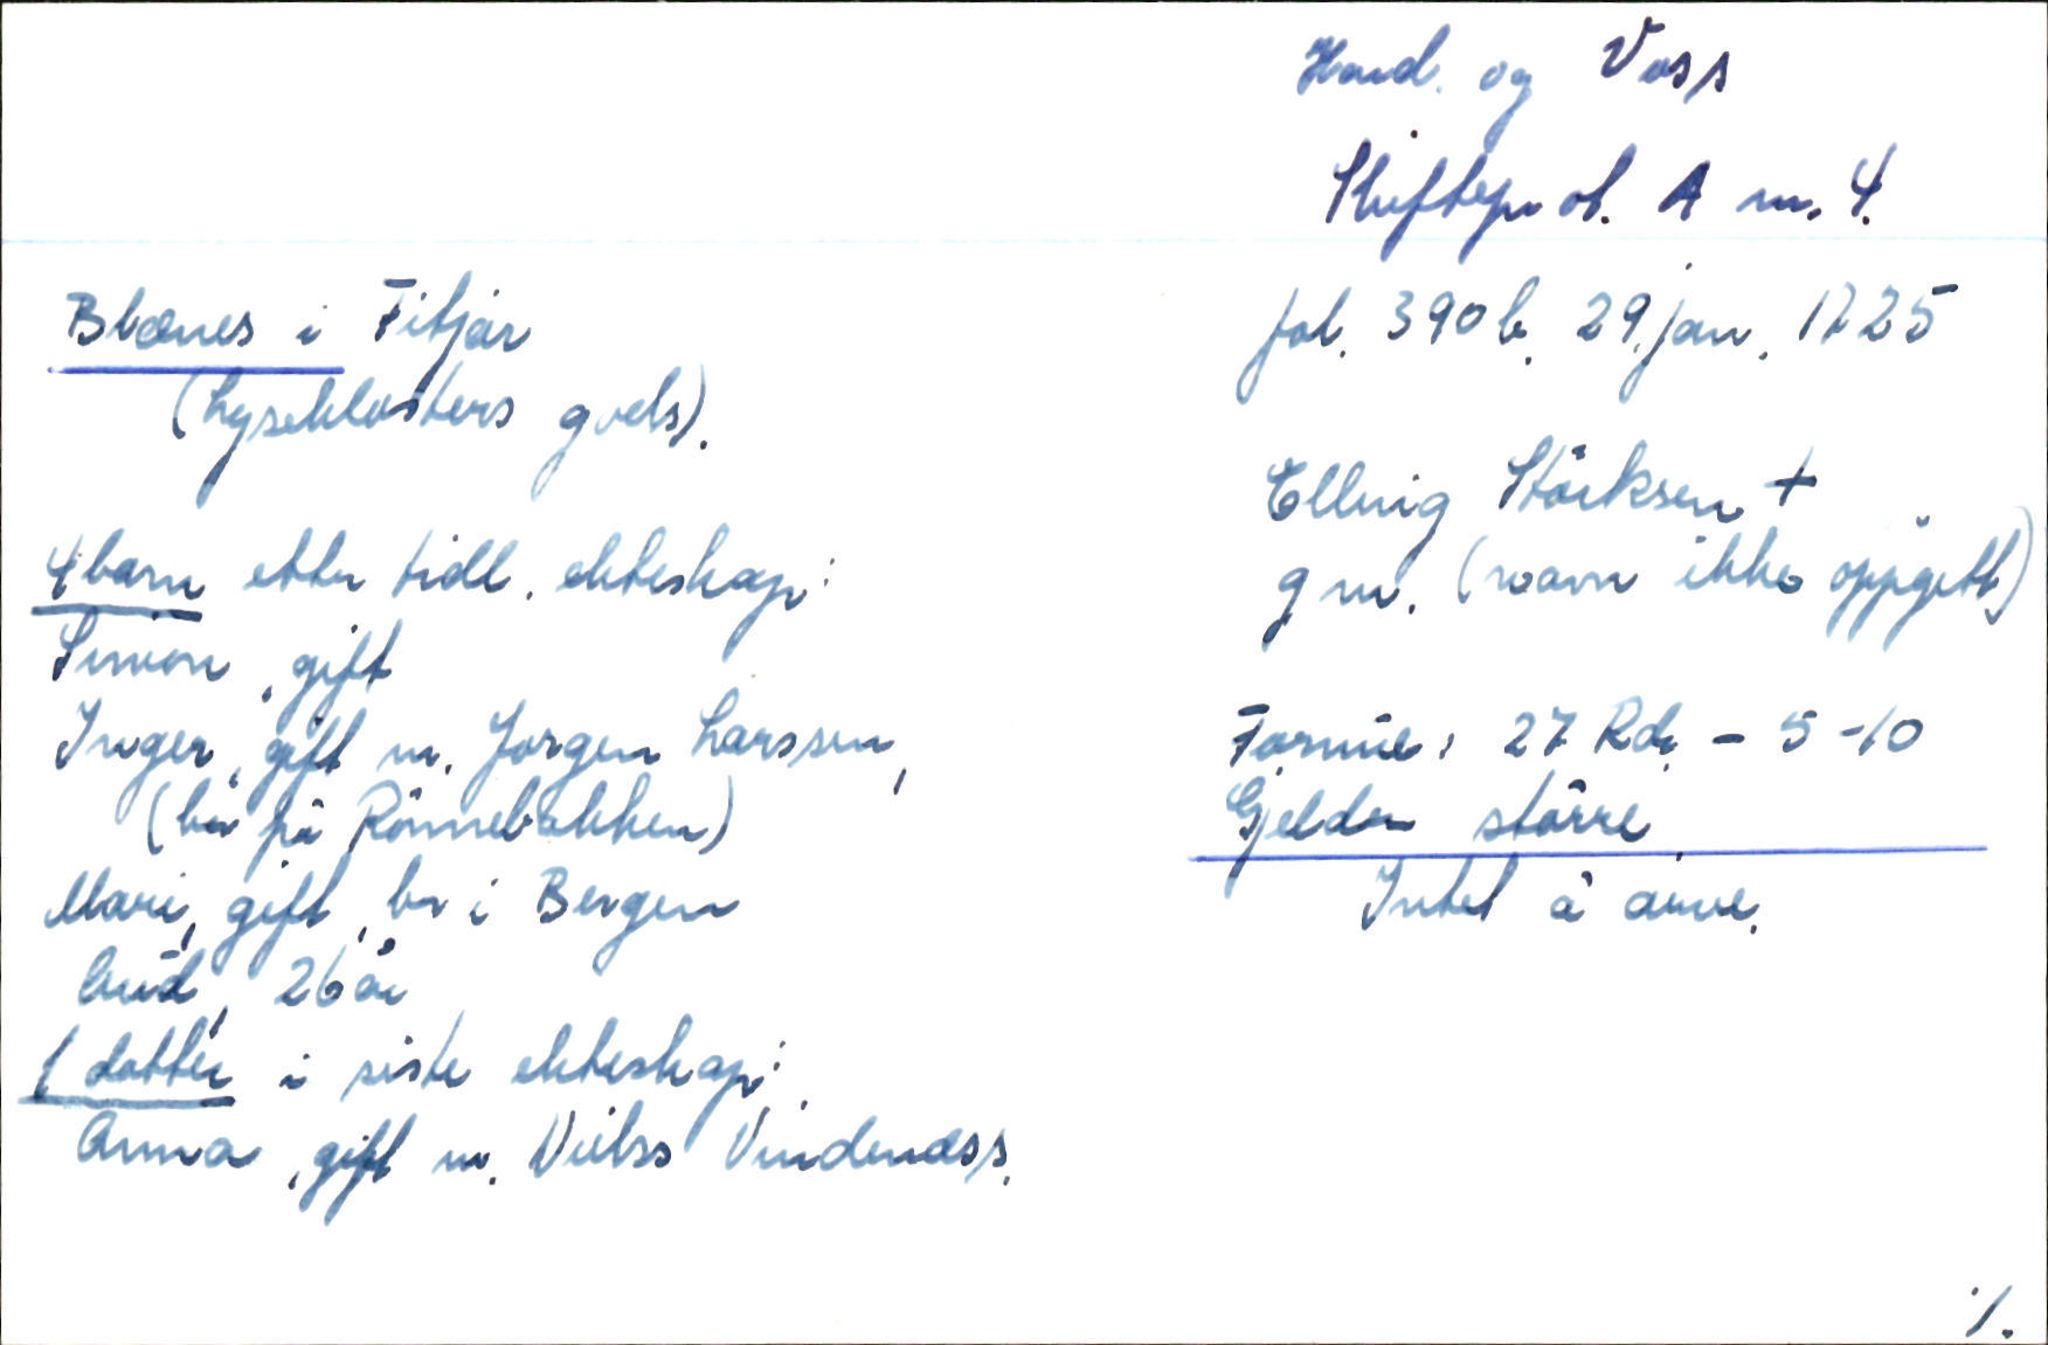 Hard. og Voss
Skifteprot. A nr. 4.
Blænes i Fitjar
(Lyseklosters gods).
fol. 390 b. 29. jan. 1725
Elling Störksen +
g m. (navn ikke oppgitt)
4 barn etter tidl. ekteskap:
Simon, gift
Inger, gift m. Jörgen Larssen,
(bor på Rönnebakken)
Mari, gift, bor i Bergen
Brid, 26 år
1 datter i siste ekteskap:
Anna, gift m. Niels Vindenæss.
Formue: 27 Rd. - 5 - 10
Gjelden större.
Intet å arve.
./.